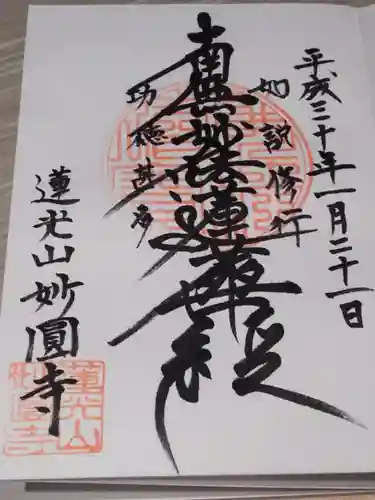 平成三十年一月二十一日
如説修行
南無妙法蓮華経
功徳甚多
蓮光山妙圓寺
蓮光山
妙圓寺